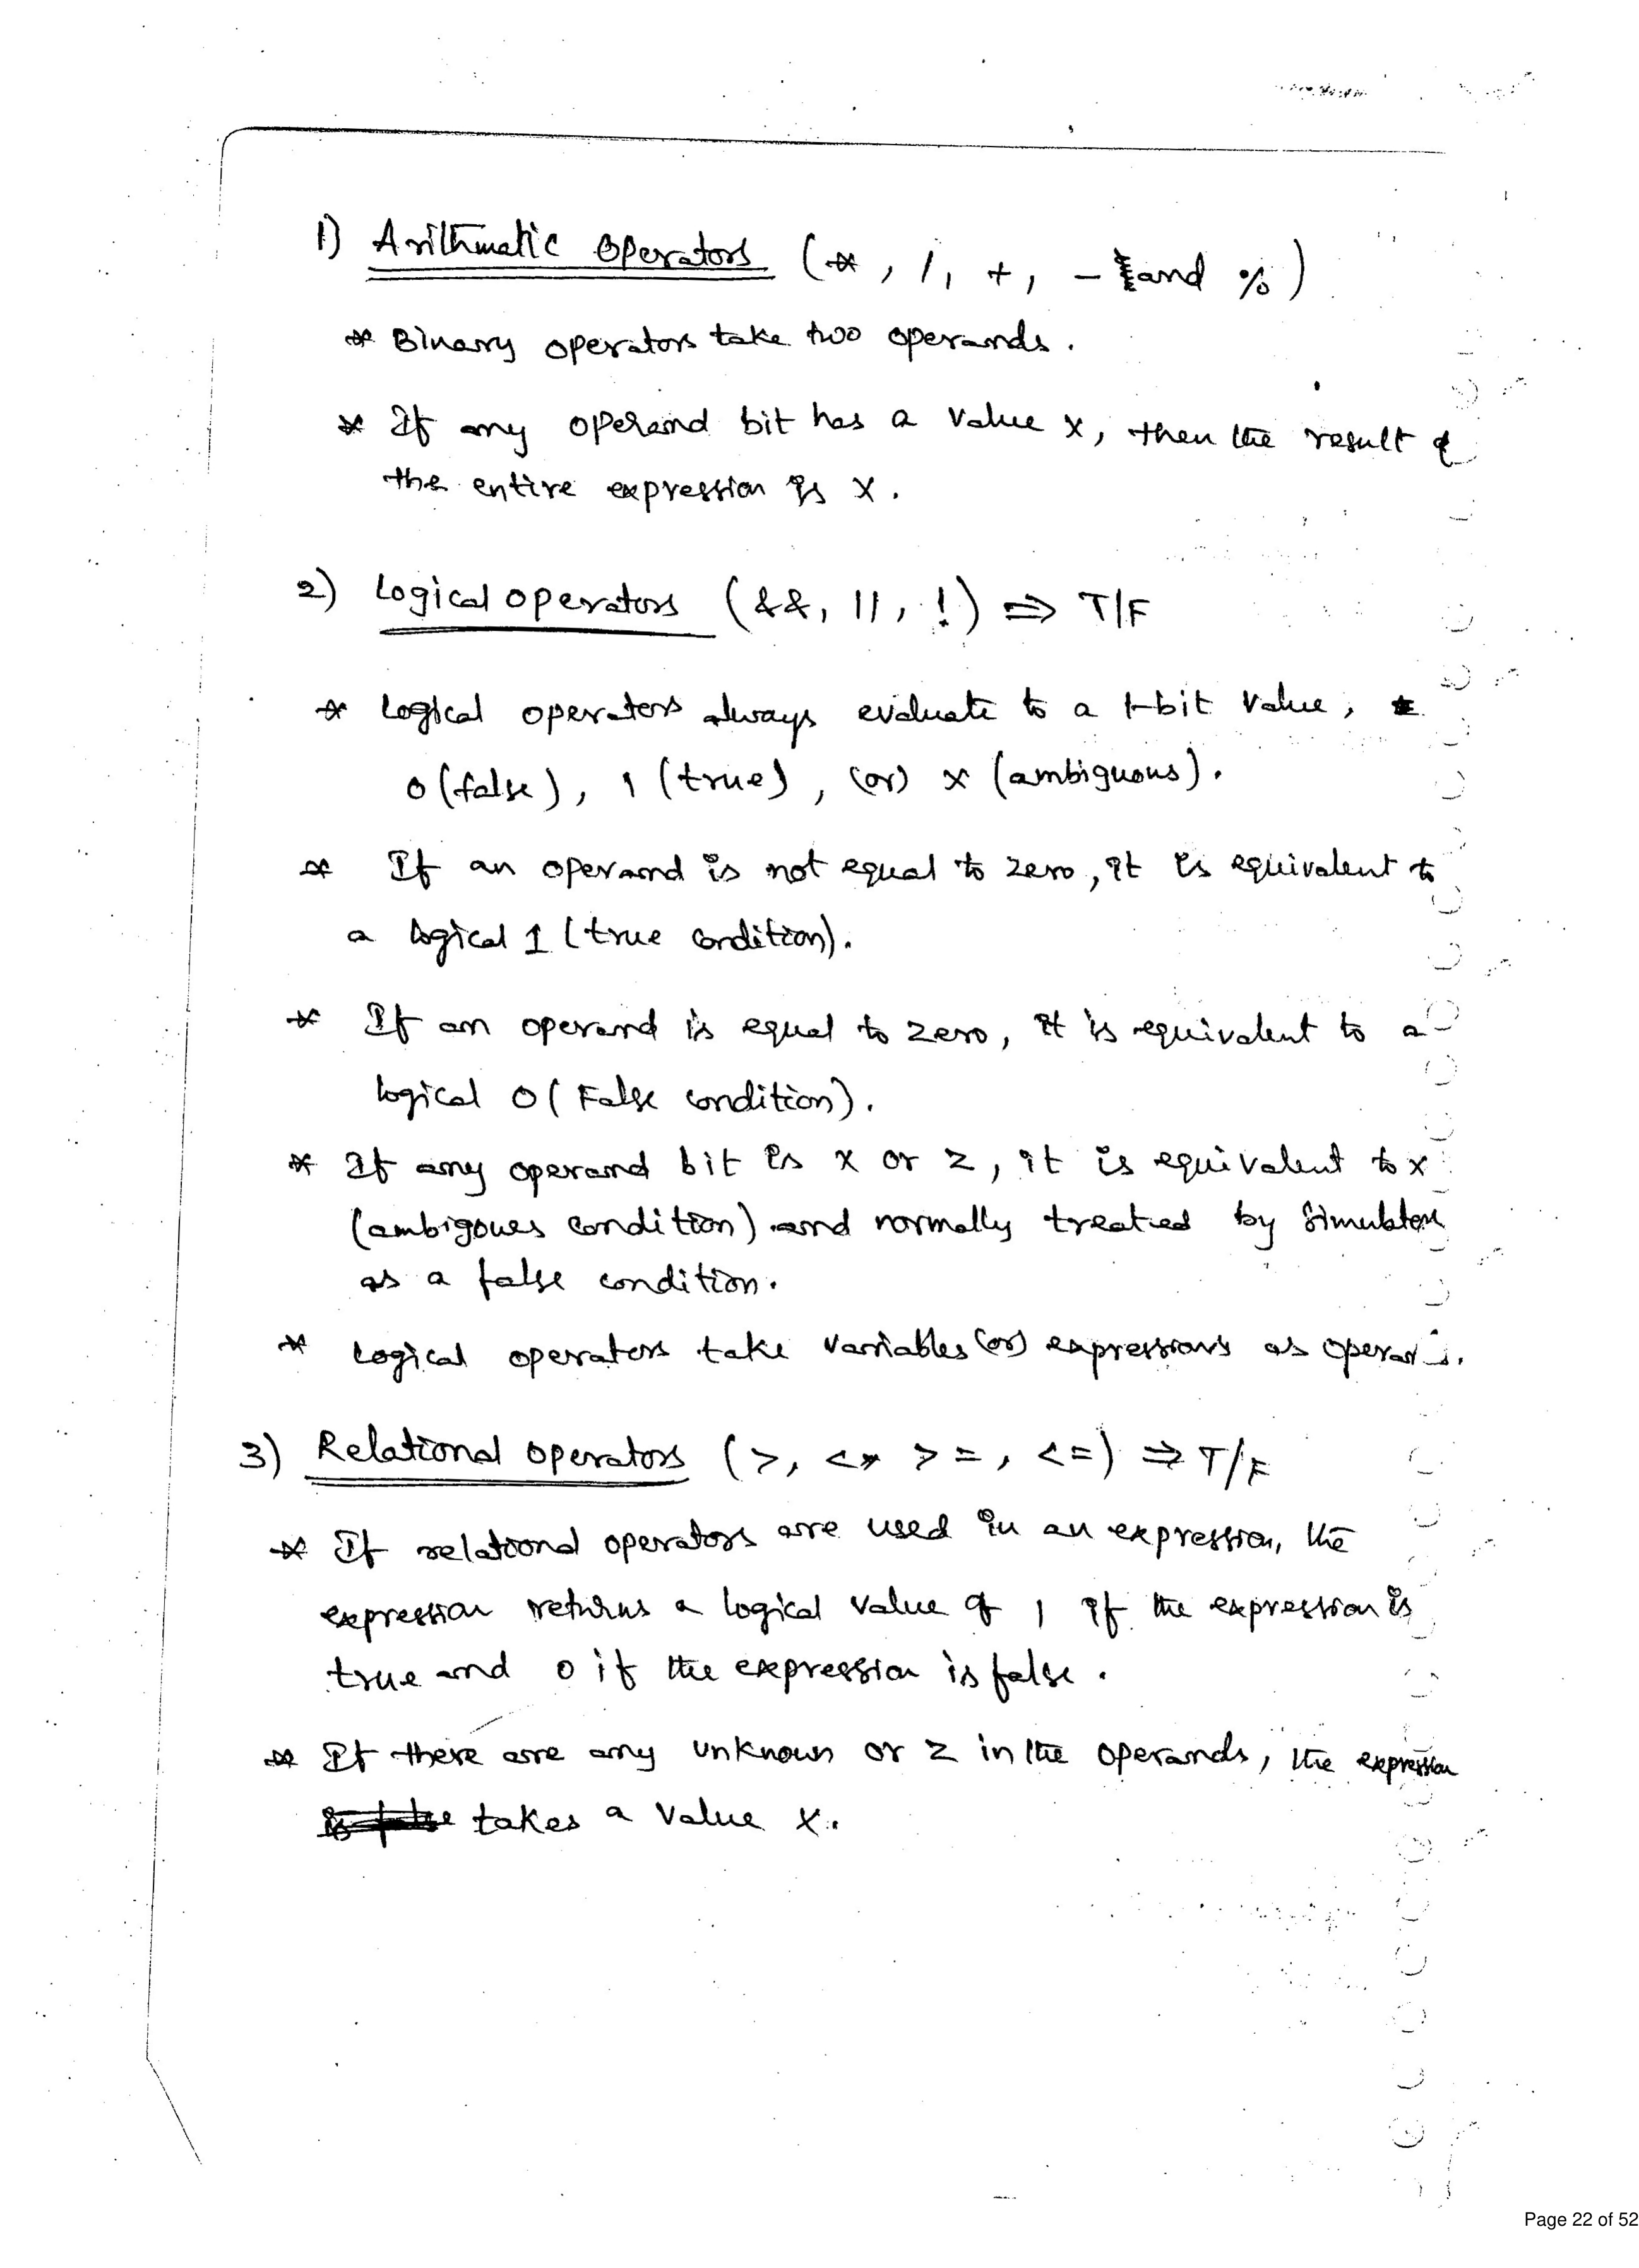 1) Arithmatic Operators (*, /, +, - and %)
* Binary operators take two operands.
* If any operand bit has a value x, then the result of
the entire expression is x.
2) Logical operators (&&, ||, !) ⇒ T/F
* Logical operators always evaluate to a 1-bit value,
0 (false), 1 (true), (or) x (ambiguous).
* If an operand is not equal to zero, it is equivalent to
a logical 1 (true condition).
* If an operand is equal to zero, it is equivalent to a
logical 0 (False condition).
* If any operand bit is x or z, it is equivalent to x
(ambigoues condition) and normally treated by simulators
as a false condition.
* Logical operators take variables (or) expressions as
3) Relational operators (>, <, >=, <=) ⇒ T/F
* If relational operators are used in an expression, the
expression returns a logical value of 1 if the expression is
true and 0 if the expression is false.
* If there are any unknown or z in the operands, the expression
takes a value x.
Page 22 of 52